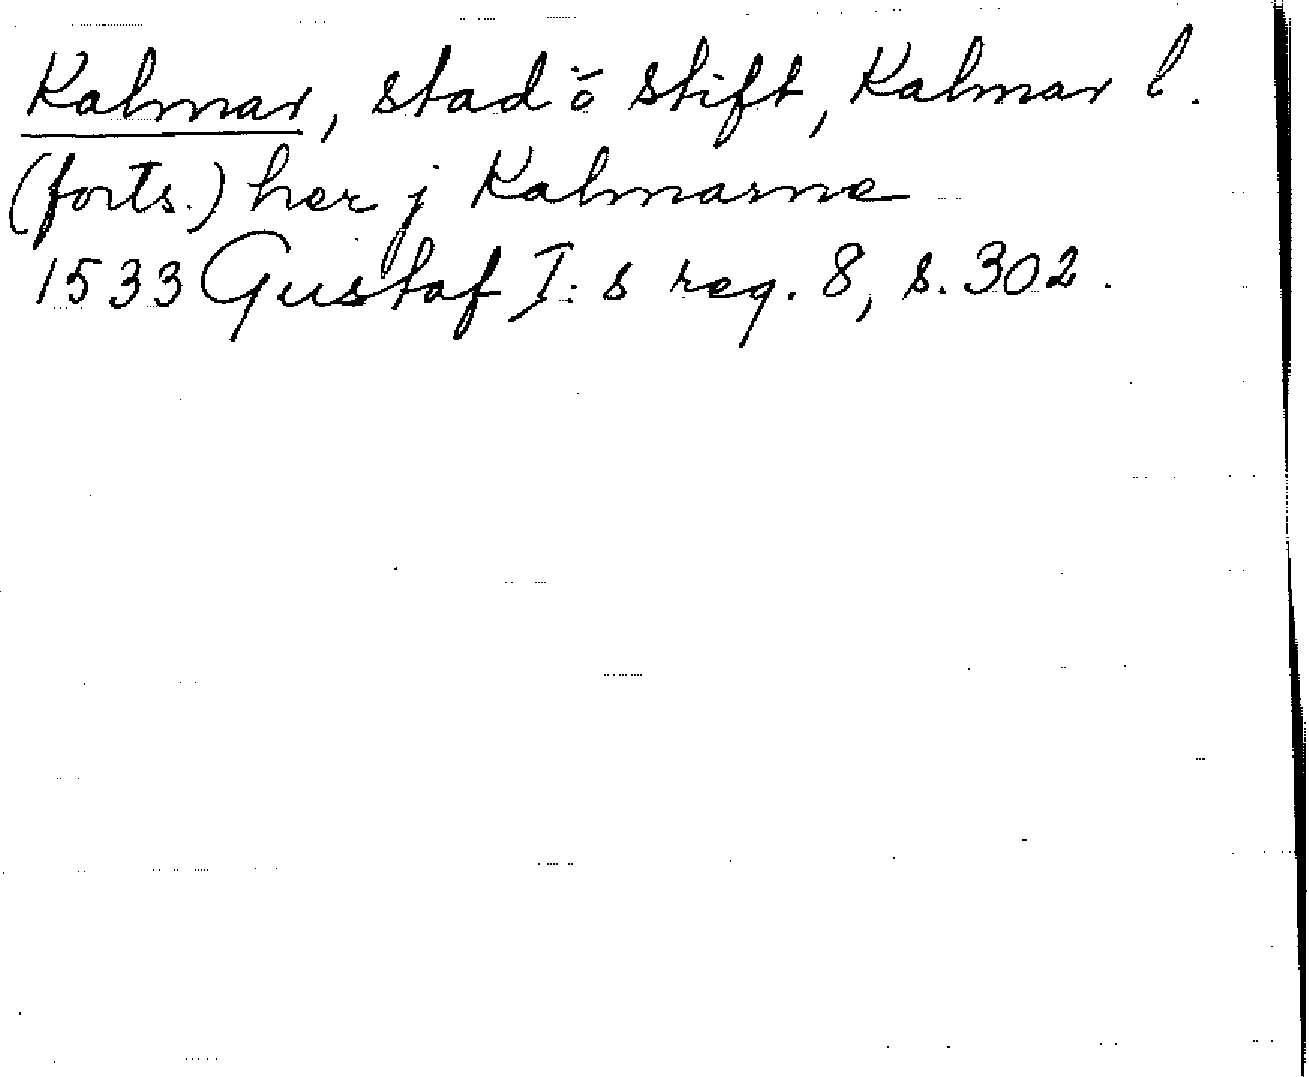 Kalmar, stad o stift, Kalmar l.
(forts.) her j Kalmarne
1533 Gustaf I:s reg. 8, s. 302.